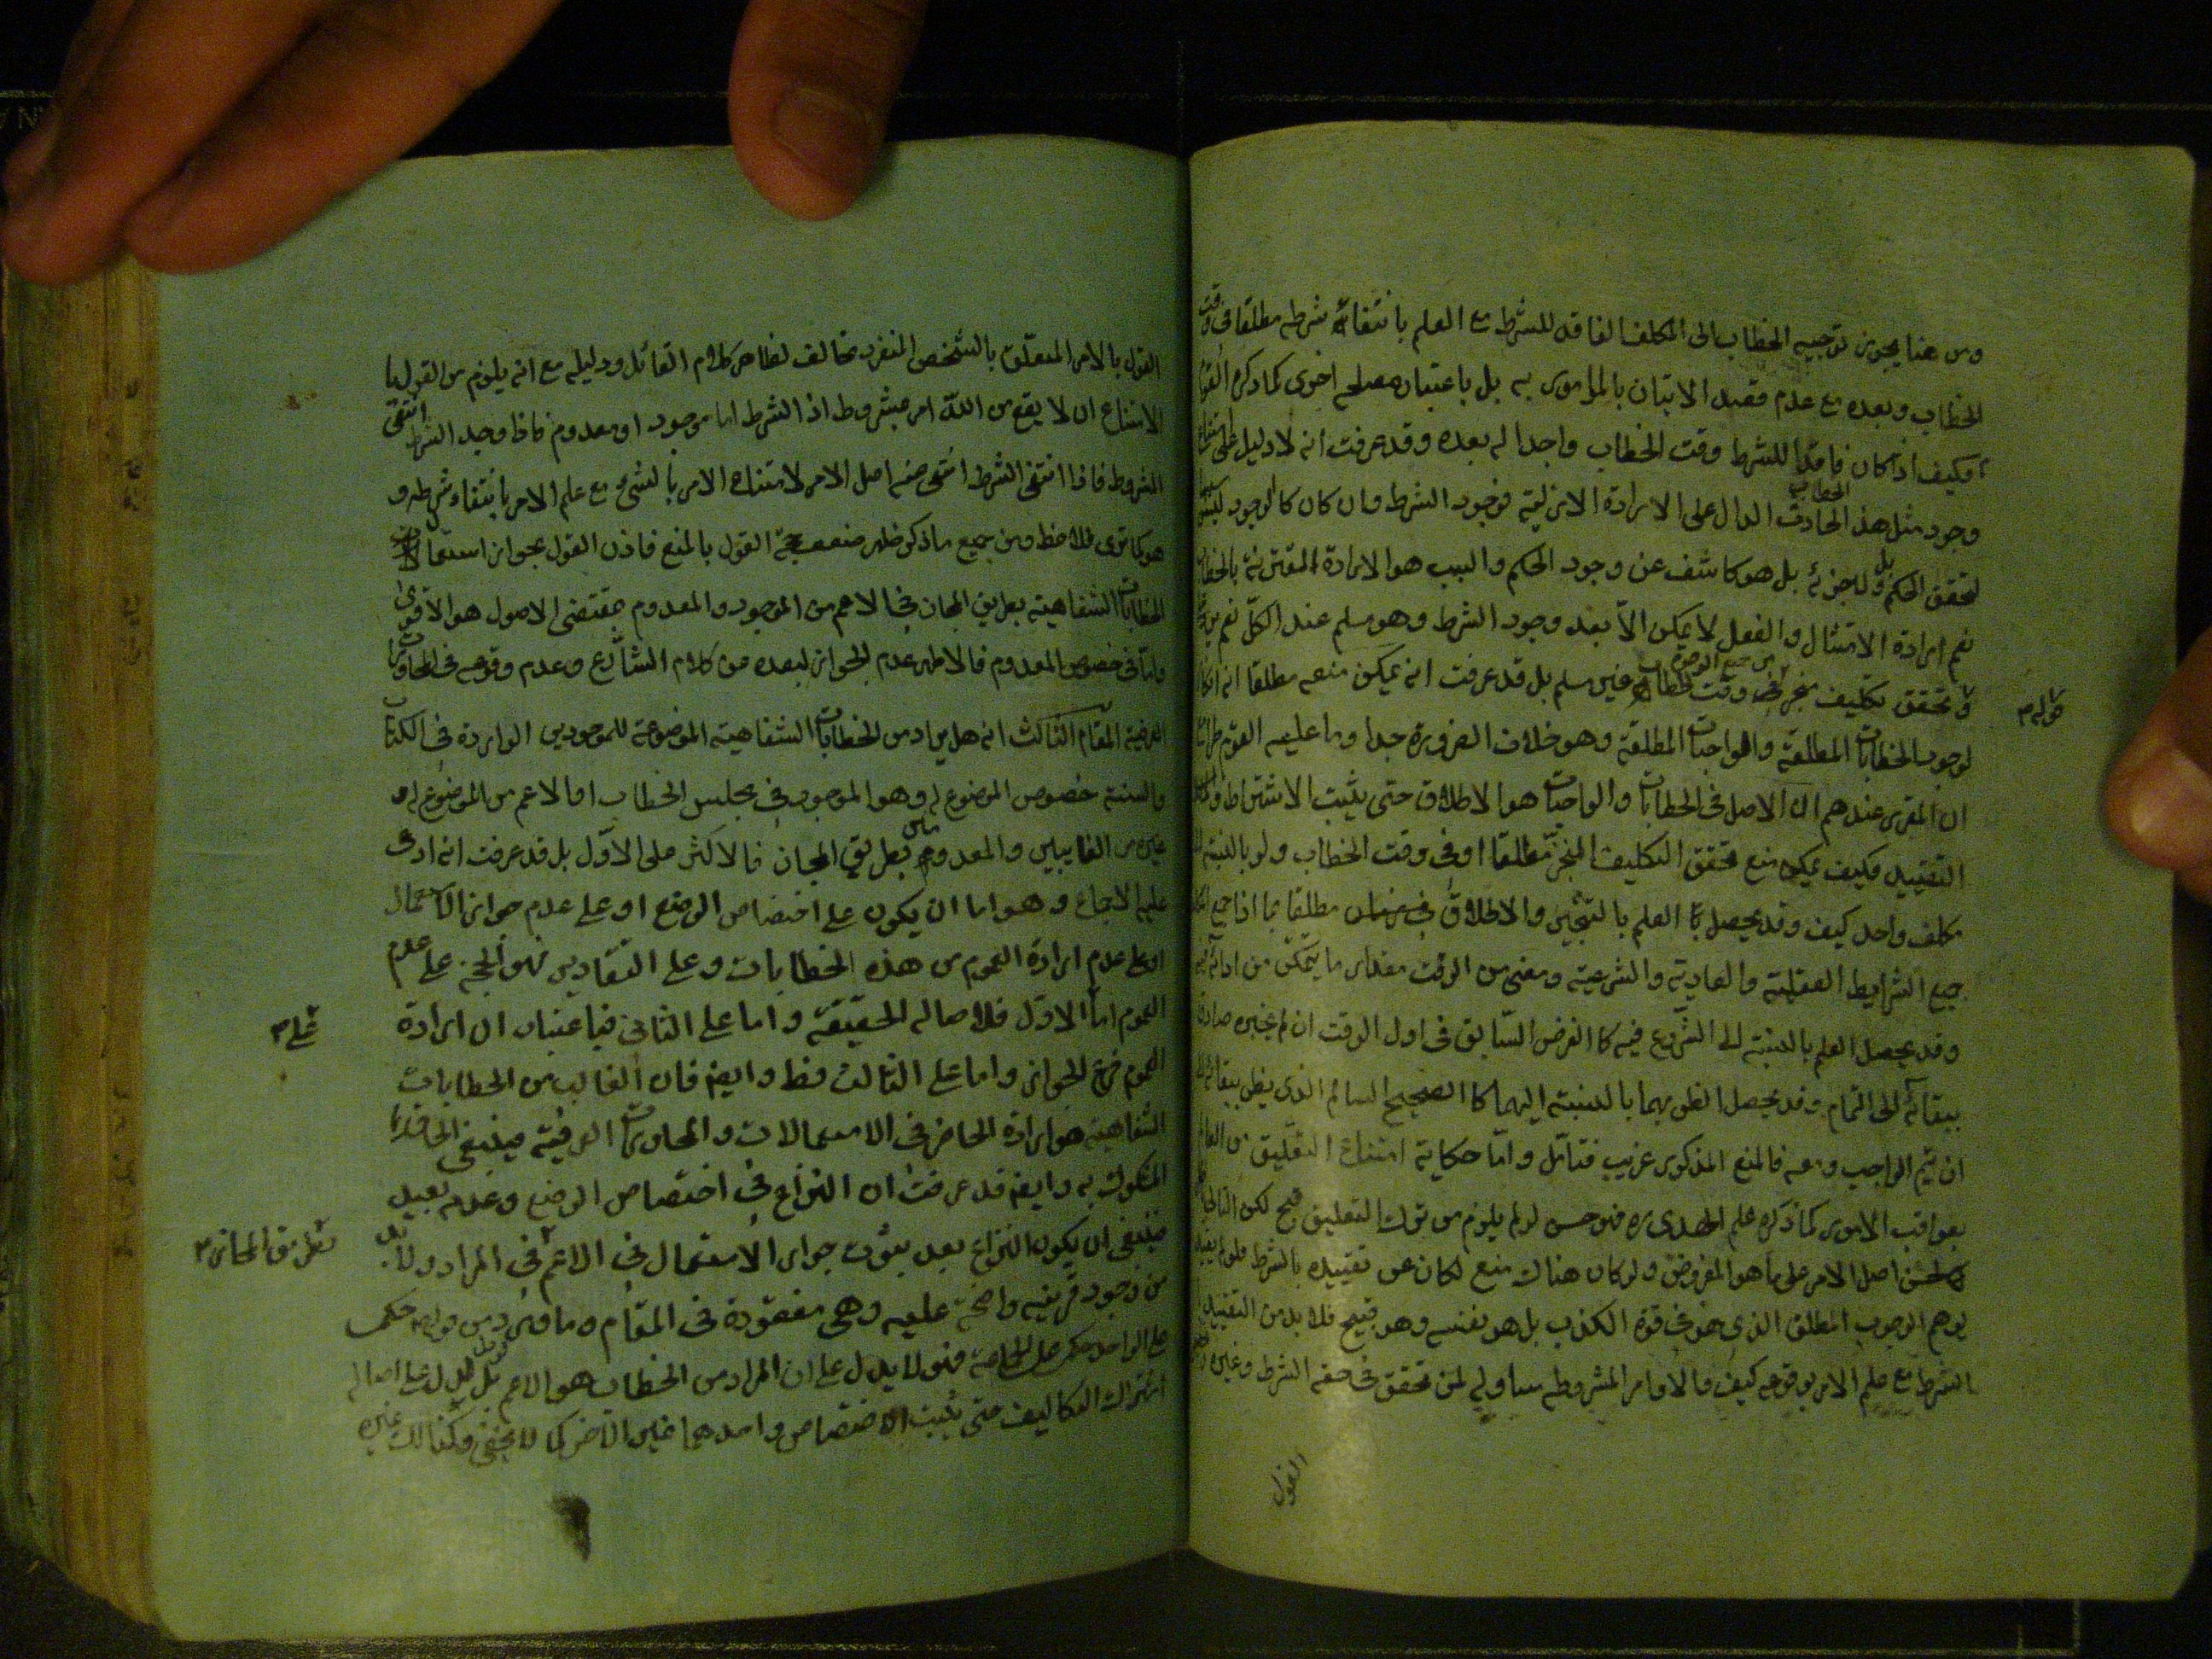 ومن هنا يجوز توجيه الخطاب الى المكلف الفاقد للشرط مع العلم بانتفاء شرطه مطلقا فى وقت
الخطاب وبعده مع عدم قصد الاتيان بالمامور به بل باعتبار مصلحة اخرى كما ذكره القوم
فكيف اذا كان فاقدا للشرط وقت الخطاب واجدا له بعده وقد عرفت انه لا دليل على امتناع
وجود مثل هذ الخطاب الحادث الدال على الارادة الازلية فوجود الشرط وان كان كالوجود ليس
لتحقق الحكم بل ولا جزئه بل هو كاشف عن وجود الحكم والسبب هو الارادة المقترنة بالخطاب
نعم ارادة الامتثال والفعل لا يمكن الا بعد وجود الشرط وهو مسلم عند الكل نعم
تحقق تكليف منجز فى وقت الخطاب غير مسلم بل قد عرفت انه يمكن منعه مطلقا
قوله م
لوجود الخطابات المطلقة والواجبات المطلقة وهو خلاف الضرورة جدا وما عليه القوم طرا
ان المقرر عندهم ان الاصل فى الخطابات والواجبات هو الاطلاق حتى يثبت الاشتراط
التقييد فكيف يمكن منع تحقق التكليف المنجز مطلقا او فى وقت الخطاب ولو بالنسبة
مكلف واحد كيف وقد يحصل لنا العلم بالتنجيز والاطلاق فى زمان مطلقا بما اذا جمع
جميع الشرايط العقلية والعادية والشرعية ومضى من الوقت مقدار ما يتمكن من ادائه
وقد يحصل العلم بالنسبة الى الشروع فيه كالفرض السابق فى اول الوقت ان لم يخبره صادق
ببقائه الى التمام وقد يحصل الظن بهما بالنسبة اليهما كالصحيح السالم الذى يظن ببقائه
ان يتم الواجب ومعه فالمنع المذكور غريب فتامل واما حكاية امتناع التعليق من العالم
بعواقب الامور كما ذكره علم الهدى ره فهو حسن لو لم يلزم من ترك التعليق قبح لكن
اصل الامر على ما هو المفروض ولو كان هناك منع لكان عن تقييده بالشرط فلو لم يقيد
يوهم الوجوب المطلق الذى هو فى قوة الكذب بل هو نفسه وهو قبيح فلا بد من التقييد
الشرط مع علم الامر بوقوعه كيف والاوامر المشروطة لمن تحقق فى حقه الشرط وغيره
القول
القول بالامر المتعلق بالشخص المنفرد مخالف لظاهر كلام القائل ودليله مع انه يلزم من القول با
الامتناع ان لا يقع من الله امر مشروط اذ الشرط اما موجود او معدوم فاذا وجد الشرط انتفى
المشروط فاذا انتفى الشرط انتفى منه اصل الامر لامتناع الامر بالشئ مع علم الامر بانتفاء شرطه و
هو كما ترى فلاحظ ومن جميع ما ذكر ظهر ضعف حجة القول بالمنع فاذن القول بجواز استعمال
الخطابات الشفاهية بطريق المجاز فى الاعم من الموجود والمعدوم مقتضى الاصول هو الاقوى
واما فى خصوص المعدوم فالاظهر عدم الجواز لبعده من كلام الشارع وعدم وقوعه فى المحاورات
العرفية المقام الثالث انه هل يراد من الخطابات الشفاهية الموضوعة للموجودين الواردة فى الكتاب
والسنة خصوص الموضوع له وهو الموجود فى مجلس الخطاب او الاعم من الموضوع له و
غيره من الغايبين والمعدومين بطريق المجاز فالاكثر على الاول بل قد عرفت انه ادعى
عليه الاجماع وهو اما ان يكون على اختصاص الوضع او على عدم جواز الاستعمال
او على عدم ارادة العموم من هذه الخطابات وعلى التقادير فهو الحجة على عدم
العموم اما الاول فلاصالة الحقيقة واما على الثانى فباعتبار ان ارادة
على م
العموم فرع الجواز واما على الثالث فظ وايضا فان الغالب من الخطابات
الشفاهية هو ارادة الحاضر فى الاستعمالات والمحاورات العرفية فينبغى الحاق
المشكوك به وايضا قد عرفت ان النزاع فى اختصاص الوضع وعدمه بعيد
فينبغى ان يكون النزاع بعد ثبوت جواز الاستعمال فى الاعم فى المراد ولا بد
بطريق المجاز م
من وجود قرينة واضحة عليه وهى مفقودة فى المقام وما ورد من قوله حكمى
على الواحد حكمى على الجماعة فهو لا يدل على ان المراد من الخطاب هو الاعم بل يدل على اصالة
اشتراك التكاليف حتى يثبت الاختصاص واحدهما غير الاخر كما لا يخفى وكذلك غيره